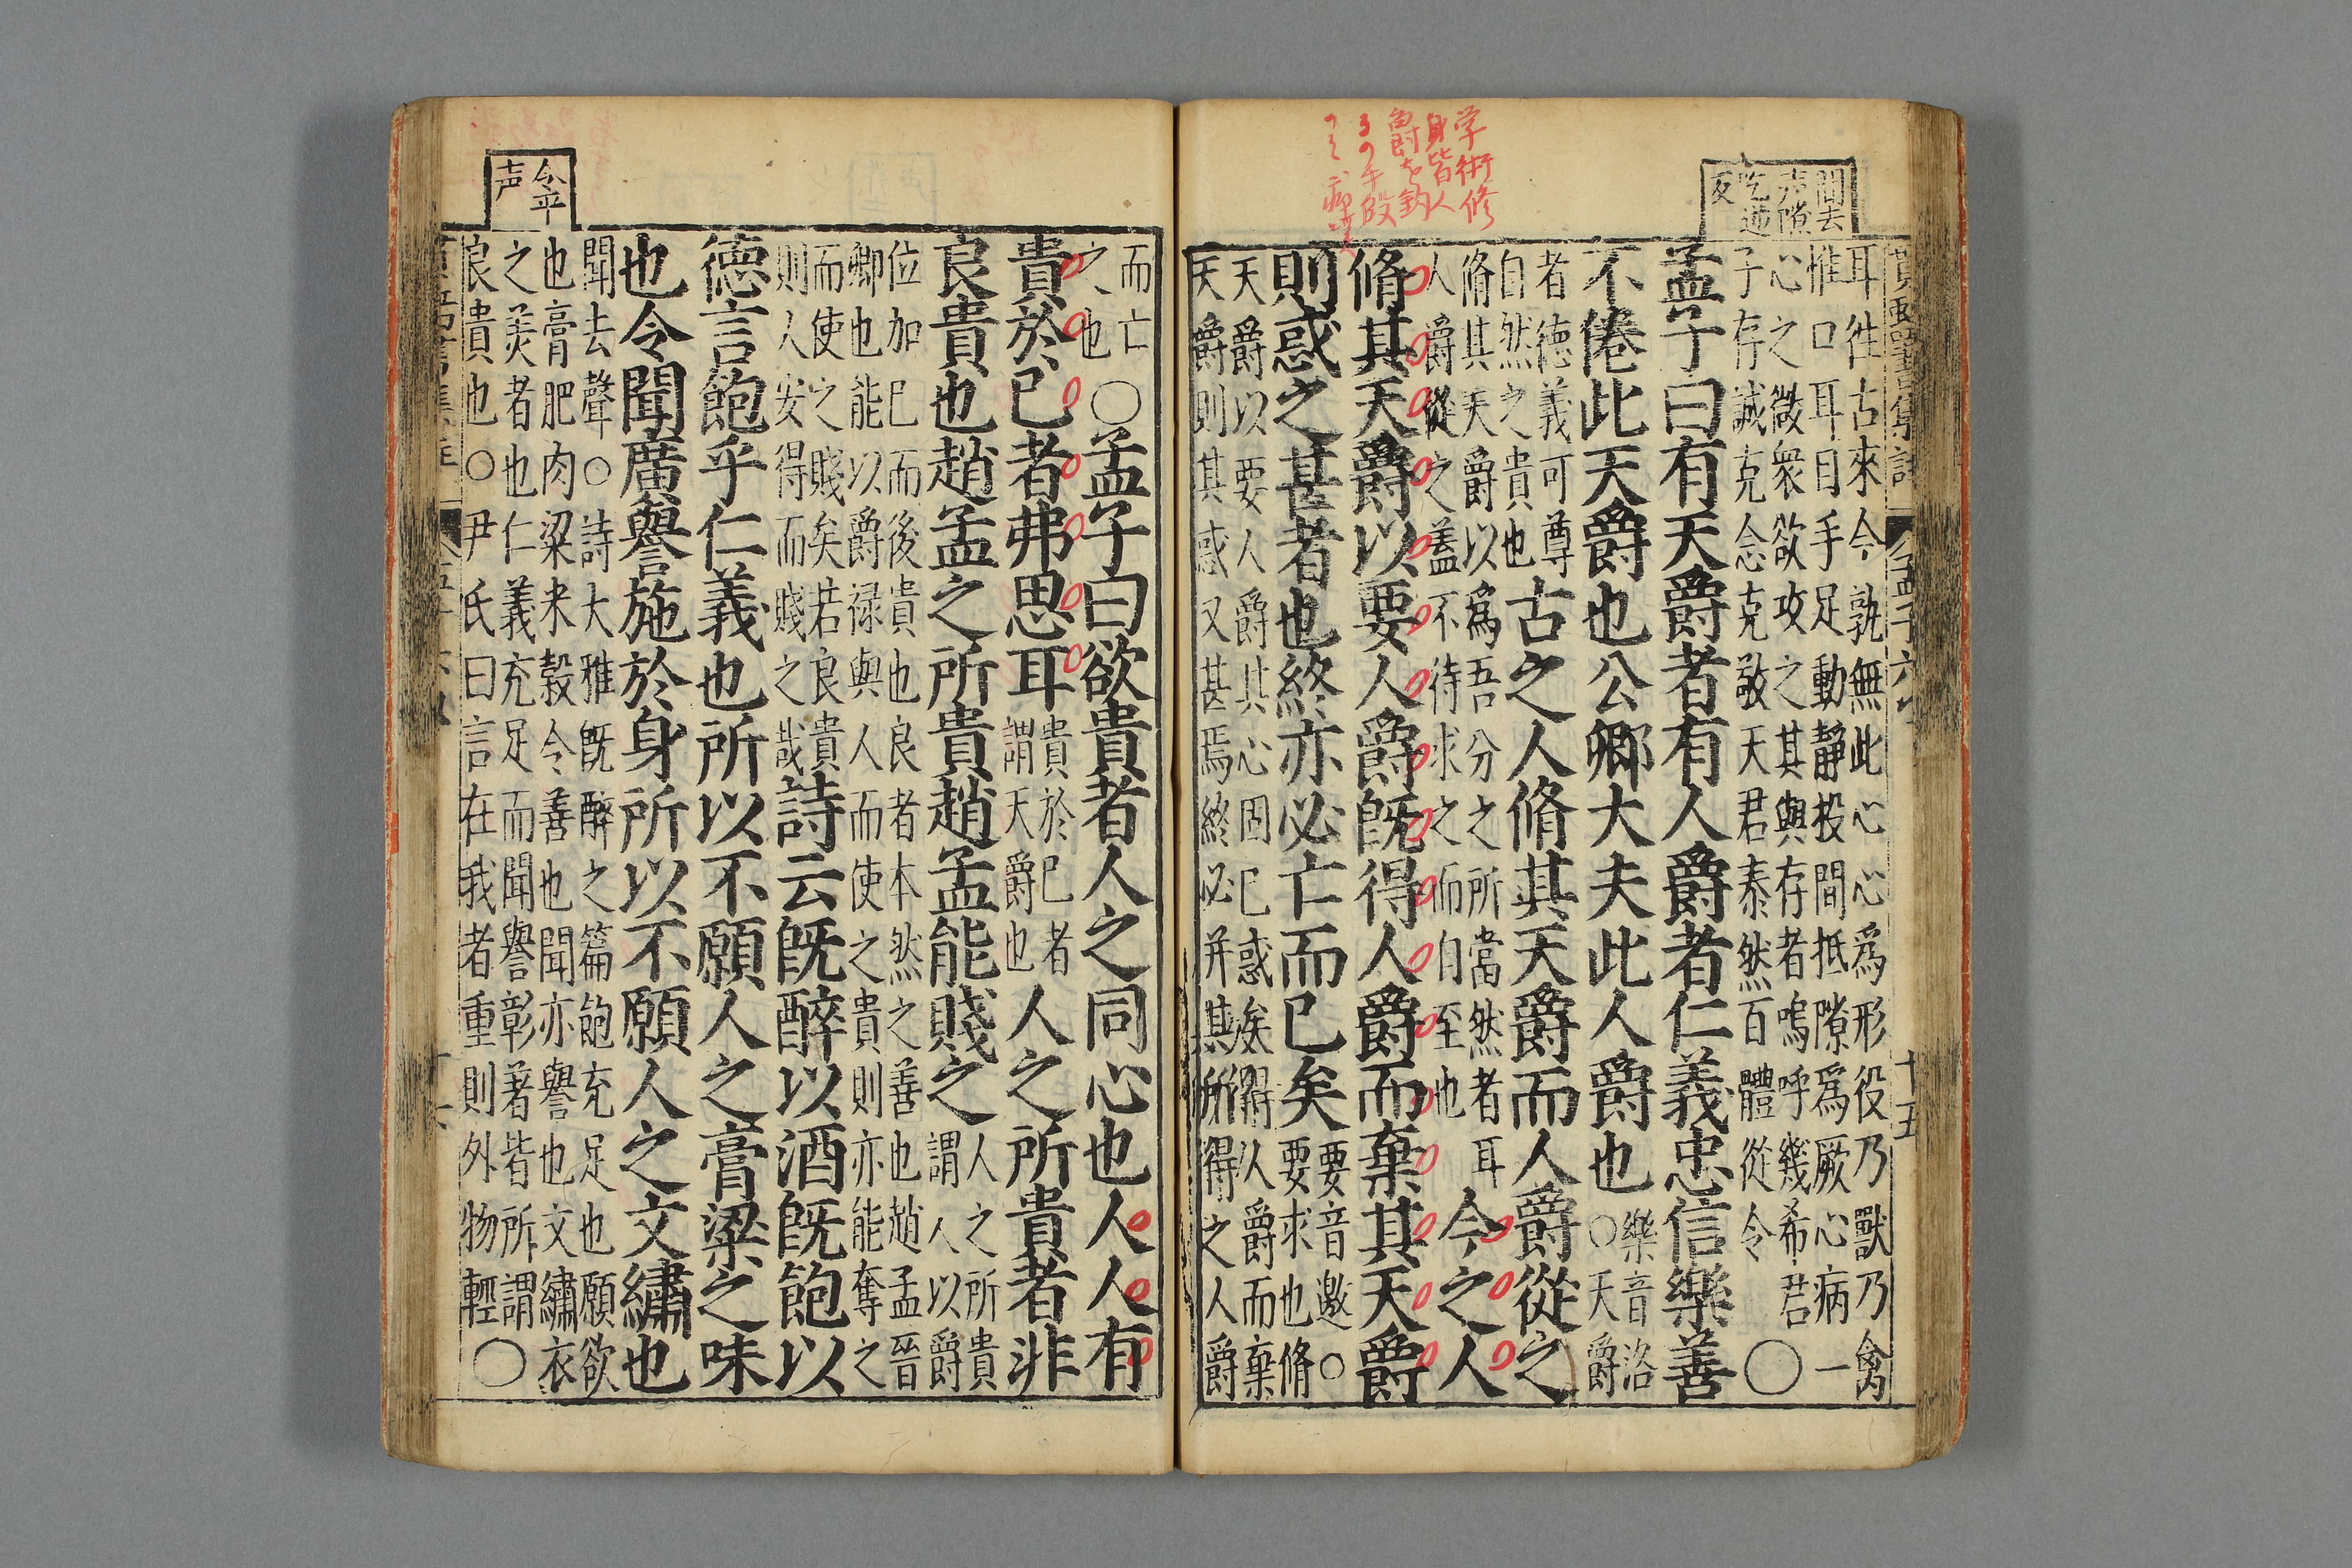 間去
声隙
乞逆
反
学術修
身皆人
爵を釣
るの手段
孟子六
十五
耳徃古來今孰無此心心爲形役乃獸乃禽
惟口耳目手足動静投間抵隙爲厥心病一
心之微衆欲攻之其與存者嗚呼幾希君
子存誠克念克敬天君泰然百體從令〇
孟子曰有天爵者有人爵者仁義忠信樂善
不倦此天爵也公卿大夫此人爵也
樂音洛
〇天爵
者德義可尊
自然之貴也
古之人脩其天爵而人爵從之
脩其天爵以爲吾分之所當然者耳
人爵從之蓋不待求之而自至也
今之人
脩其天爵以要人爵旣得人爵而棄其天爵
則惑之甚者也終亦必亡而已矣
要音邀〇
要求也脩
天爵以要人爵其心固已惑矣得人爵而棄
天爵則其惑又甚焉終必并其所得之人爵
而亡
之也
〇孟子曰欲貴者人之同心也人人有
貴於已者弗思耳
貴於已者
謂天爵也
人之所貴者非
良貴也趙孟之所貴趙孟能賤之
人之所貴
謂人以爵
位加已而後貴也良者本然之善也趙孟晉
卿也能以爵禄與人而使之貴則亦能奪之
而使之賤矣若良貴
則人安得而賤之哉
詩云旣醉以酒旣飽以
德言飽乎仁義也所以不願人之膏粱之味
也令聞廣譽施於身所以不願人之文繡也
聞去聲〇詩大雅旣醉之篇飽充足也願欲
也膏肥肉粱米穀令善也聞亦譽也文繡衣
之羙者也仁義充足而聞譽彰著皆所謂
良貴也〇尹氏曰言在我者重則外物輕〇
令平
声